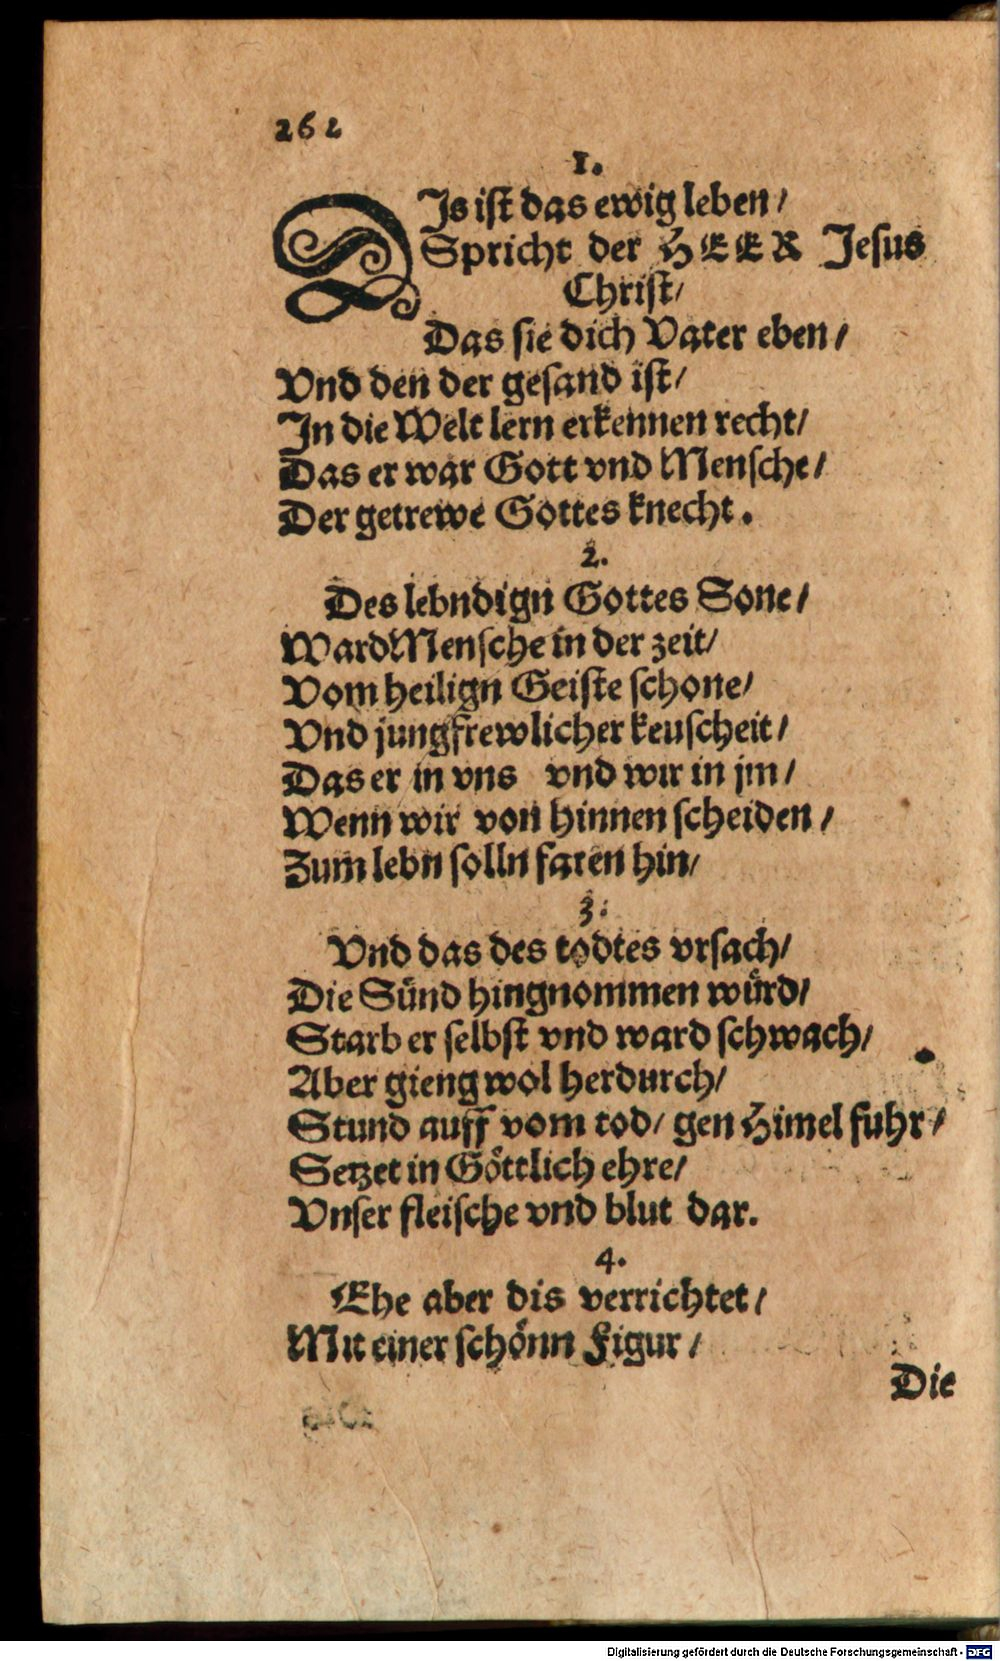 262
1.
DJs ist das ewig leben/
Spricht der HEER Jesus
Christ/
Das sie dich Vater eben/
Vnd den der gesand ist/
Jn die Welt lern erkennen recht/
Das er war Gott vnd Mensche/
Der getrewe Gottes knecht.
2.
Des lebndign Gottes Sone/
Ward Mensche in der zeit/
Vom heilign Geiste schone/
Vnd jungfrewlicher keuscheit/
Das er in vns vnd wir in jm/
Wenn wir von hinnen scheiden/
Zum lebn solln faren hin/
3.
Vnd das des todtes vrsach/
Die Sünd hingnommen würd/
Starb er selbst vnd ward schwach/
Aber gieng wol herdurch/
Stund auff vom tod/ gen Himel fuhr/
Setzet in Göttlich ehre/
Vnser fleische vnd blut dar.
4.
Ehe aber dis verrichtet/
Mit einer schönn Figur/
Die
Digitalisierung gefördert durch die Deutsche Forschungsgemeinschaft - DFG